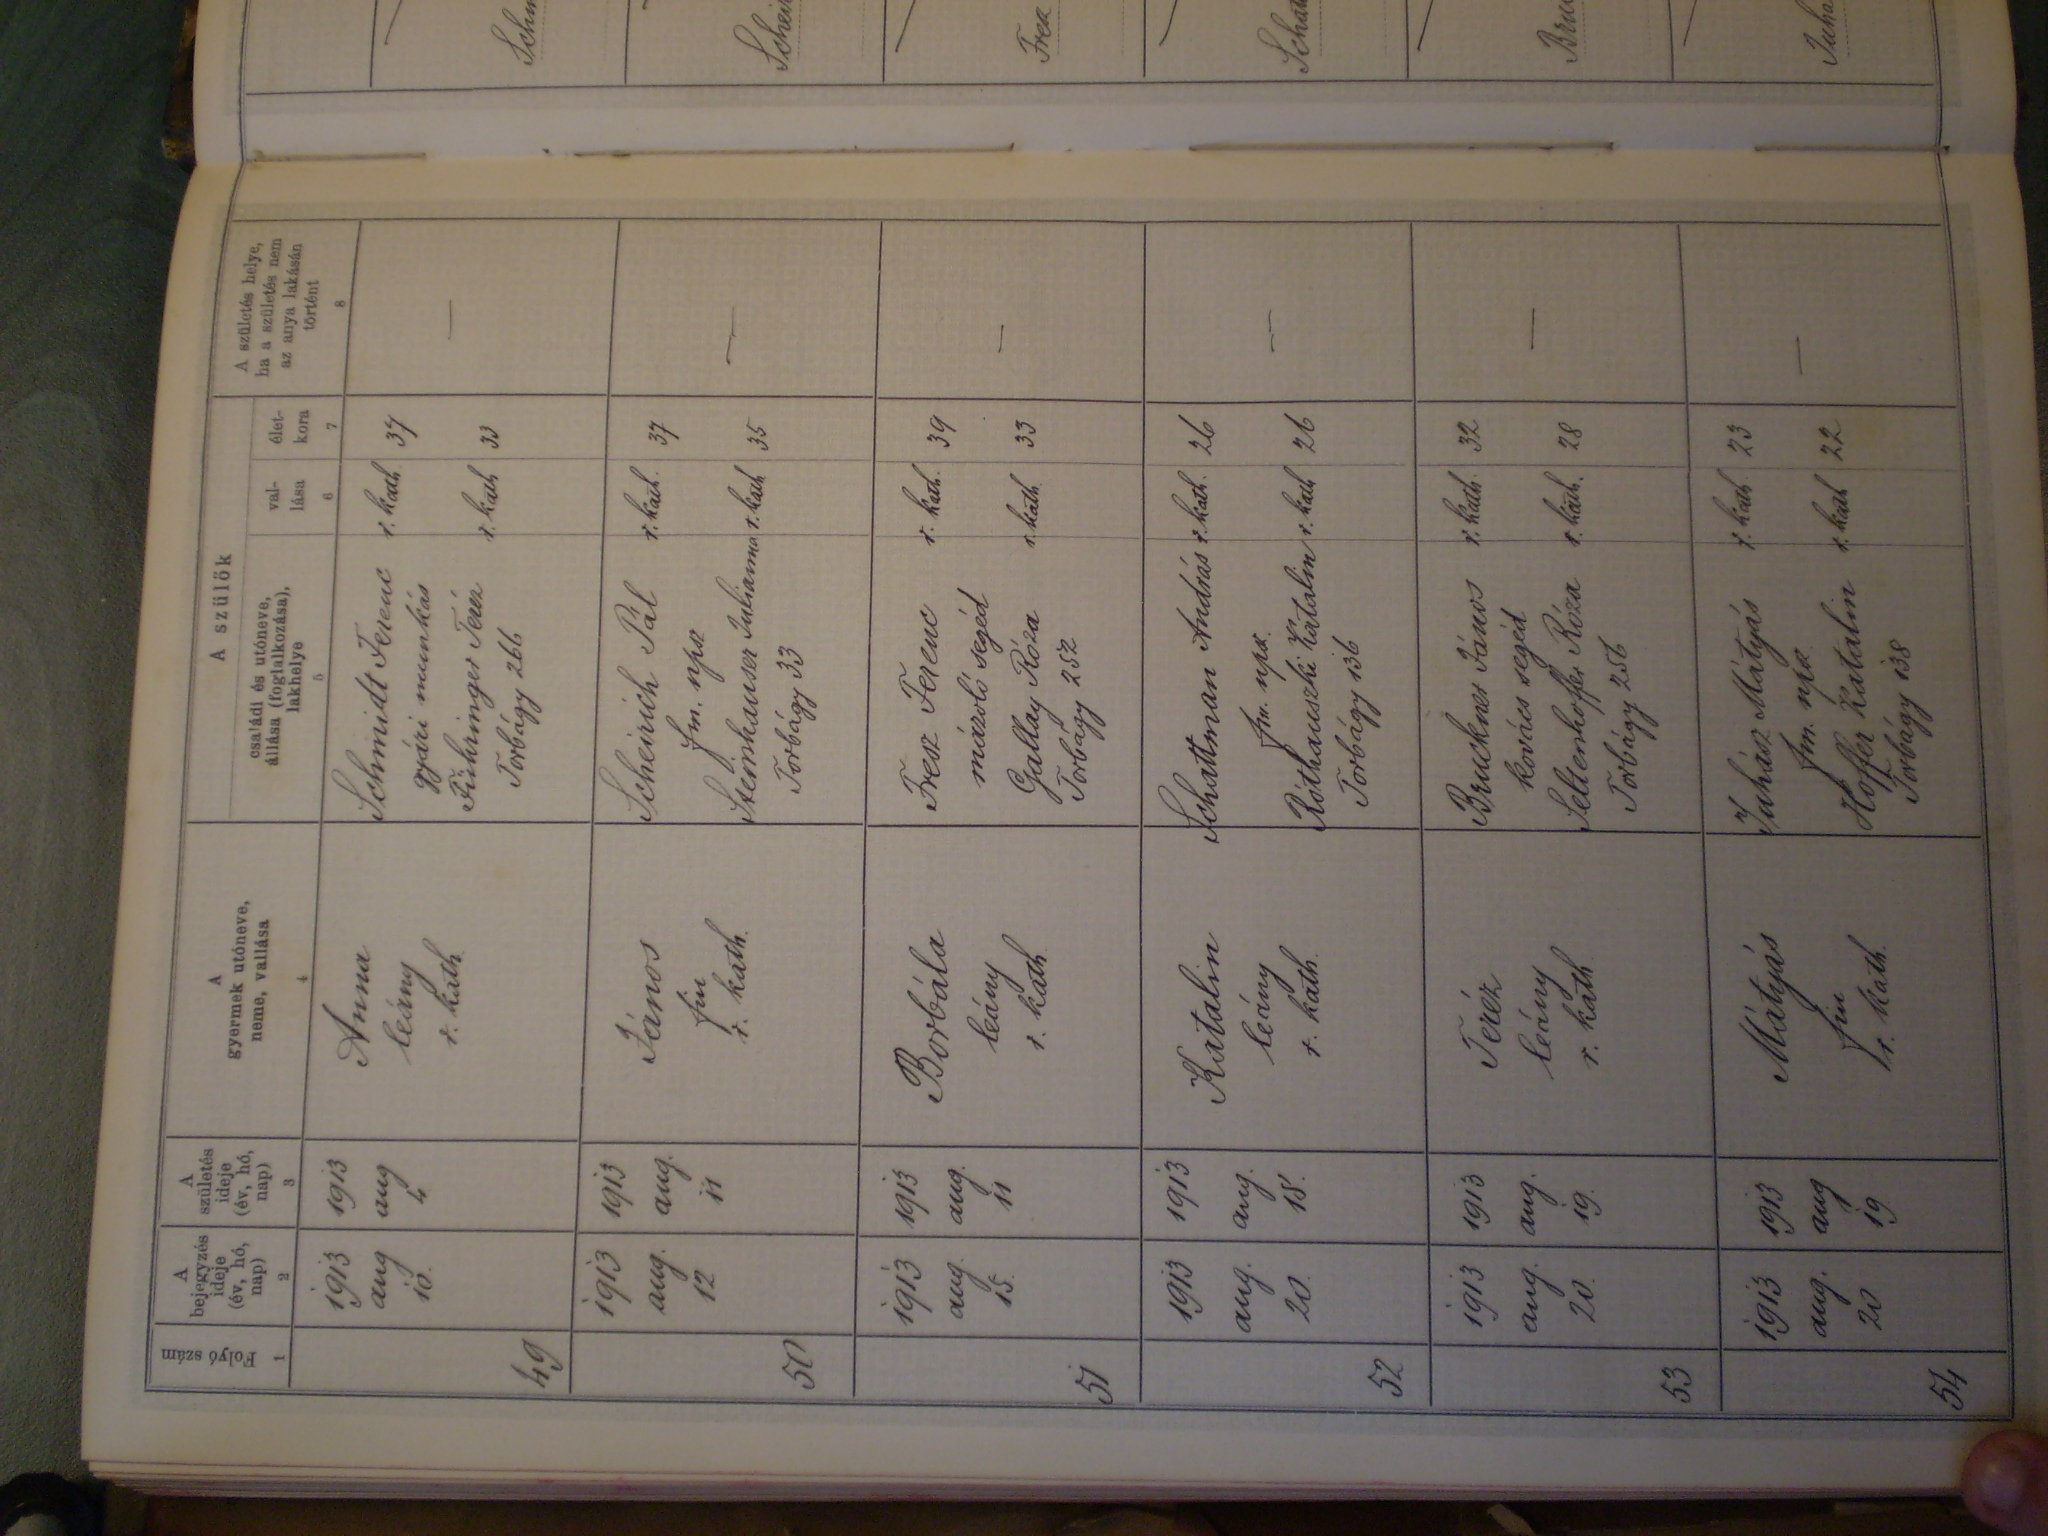 Folyó szám
1
A
bejegyzés
ideje
(év, hó,
nap)
2
A
születés
ideje
(év, hó,
nap)
3
A
gyermek utóneve,
neme, vallása
4
A szülők
családi és utóneve,
állása (foglalkozása),
lakhelye
5
val-
lása
6
élet-
kora
7
A születés helye,
ha a születés nem
az anya lakásán
történt
8
49
1913
aug
10.
1913
aug
4
Anna
leány
r. kath.
Schmidt Ferenc r. kath 37
gyári munkás
Teréz r. kath 33
Torbágy 266
—
50
1913
aug.
12
1913
aug.
11
János
fiu
r. kath.
Scheirich Pál r. kath. 37
fm. npsz
Steinhauser Julianna r. kath 35
Torbágy 33
—
51
1913
aug.
15.
1913
aug.
11
Borbála
leány
r. kath
Fresz Ferenc r. kath. 39
mázoló segéd
Gallay Róza r. kath. 33
Torbágy 252
—
52
1913
aug.
20.
1913
aug.
18.
Katalin
leány
r. kath.
Schattman András r. kath. 26
fm. npsz.
Róthauszki Katalin r. kath 26
Torbágy 136
—
53
1913
aug.
20.
1913
aug.
19.
Teréz
leány
r. kath
Bruckner János r. kath. 32
kovács segéd
Seltenhoffer Róza r. kath. 28
Torbágy 256
—
54
1913
aug.
20
1913
aug
19
Mátyás
fiu
r. kath.
Juhász Mátyás r. kath 23
fm. npsz
Hoffer Katalin r. kath 22
Torbágy 138
—
Schm
Schei
Fres
Schat
Bru
Juha